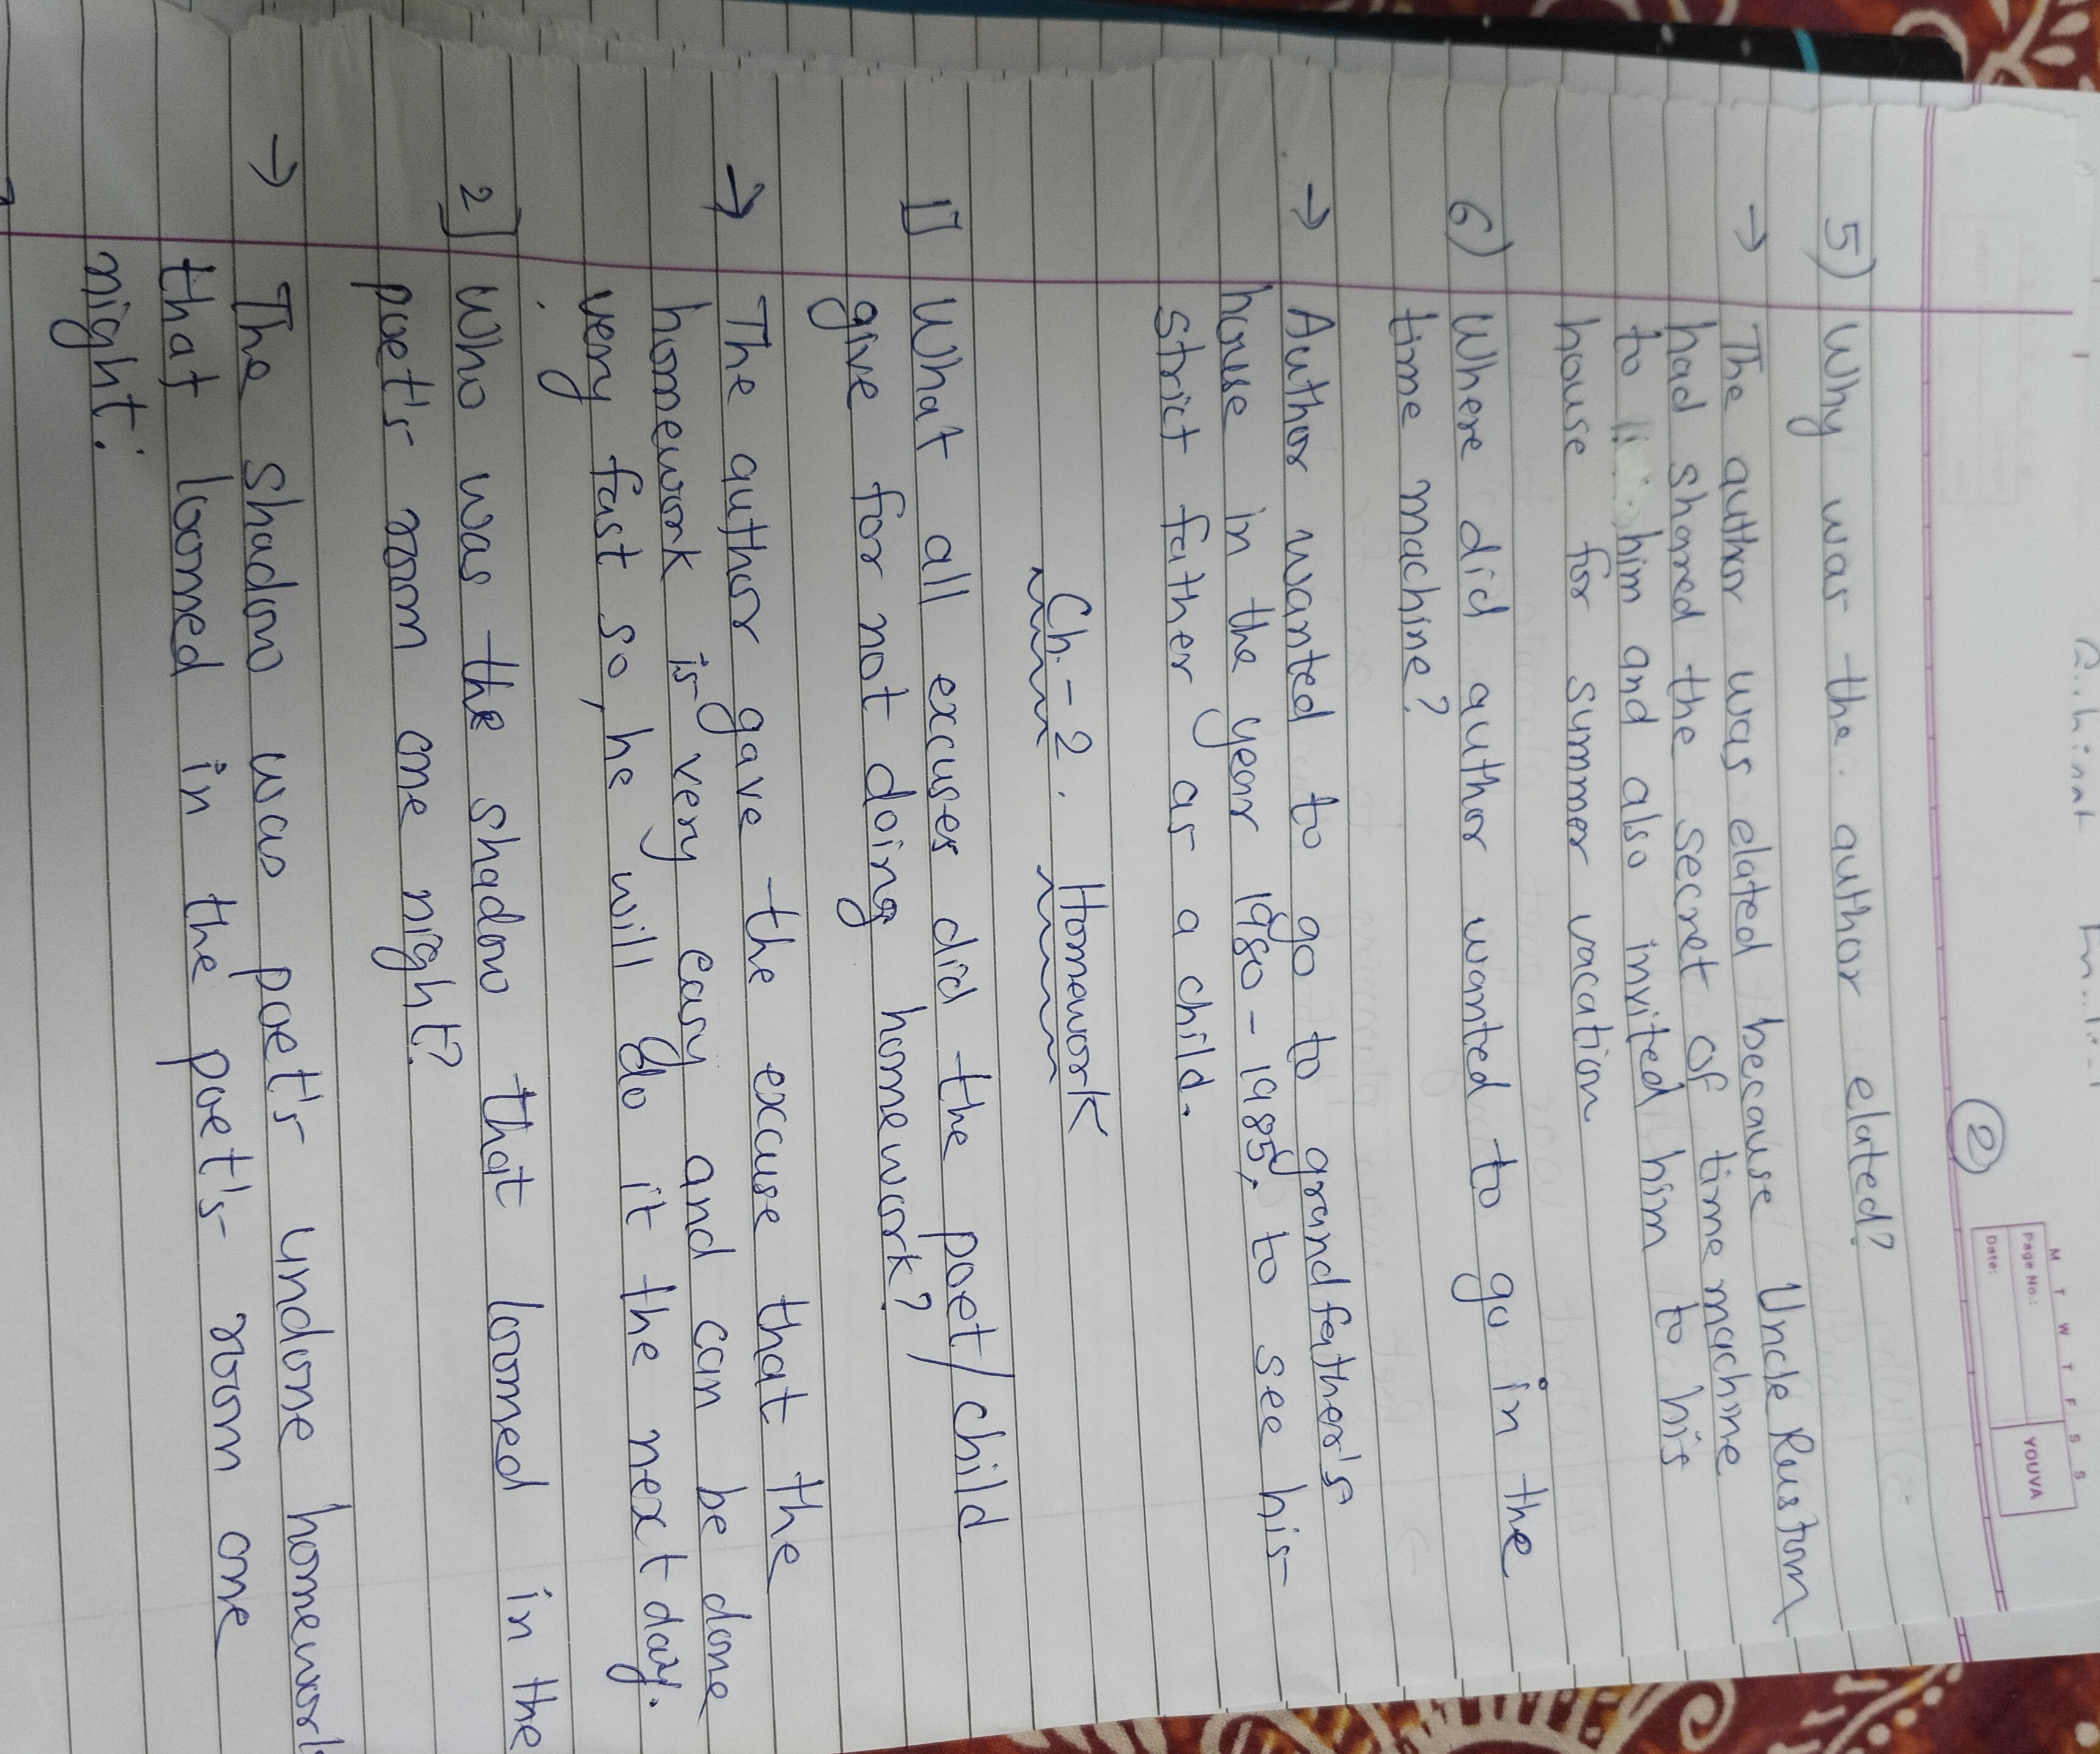 ②
M T W T F S S
Page No.:
Date:
YOUVA
5) Why was the author elated?
→ The author was elated because Uncle Rustom
had shared the secret of time machine
to him and also invited him to his
house for summer vacation
6) Where did author wanted to go in the
time machine?
→ Author wanted to go to grandfather's
house in the year 1980-1985, to see his
strict father as a child.
Ch-2. Homework
1] What all excuses did the poet/child
give for not doing homework?
→ The author gave the excuse that the
homework is very easy and can be done
very fast so, he will do it the next day.
2] Who was the shadow that loomed in the
poet's room one night?
→ The shadow was poet's undone homework
that loomed in the poet's room one
night.